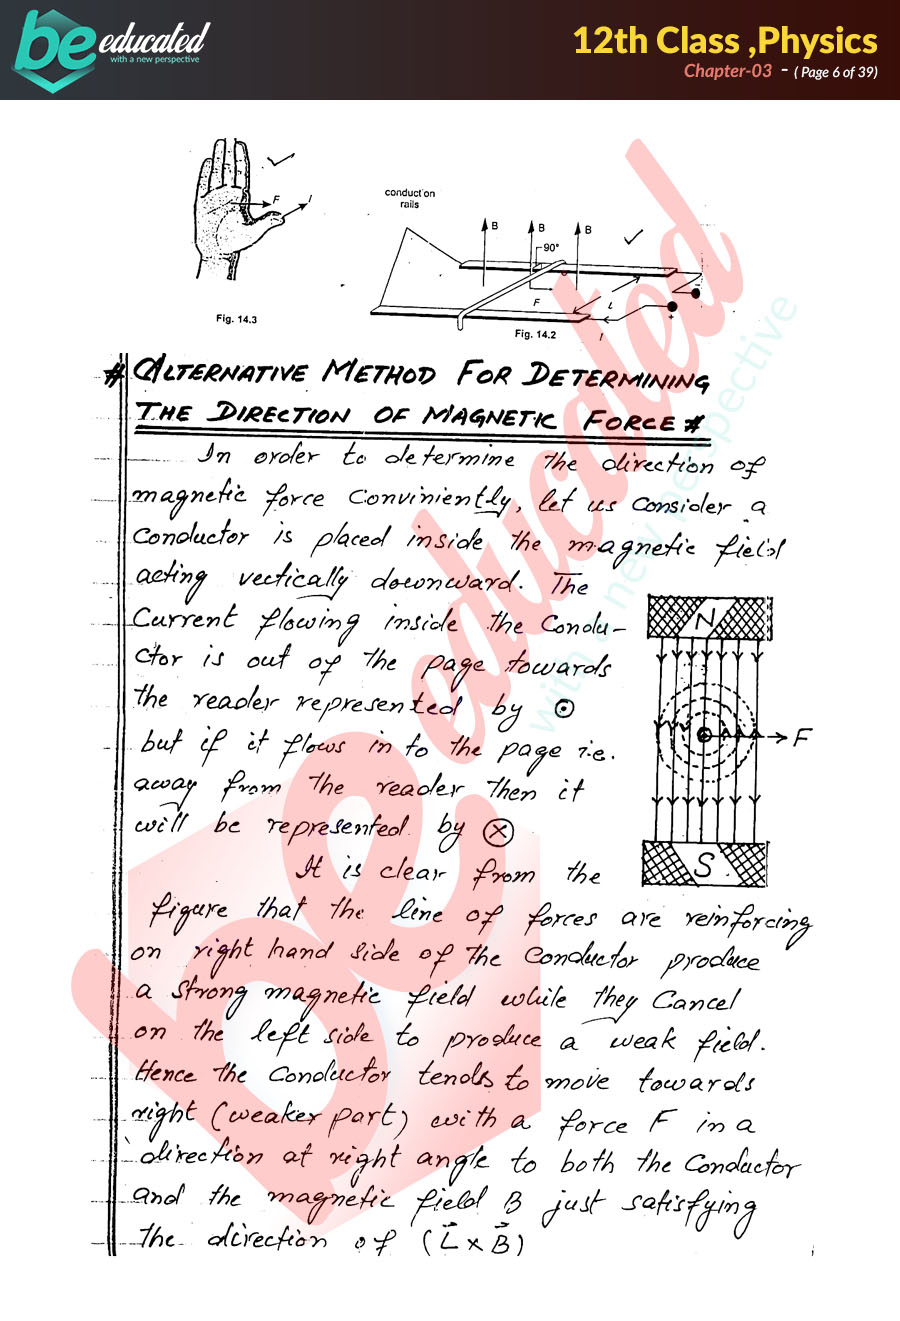 be educated
with a new perspective
12th Class ,Physics
Chapter-03 - ( Page 6 of 39)
F
I
conduction
rails
B
B
B
90°
F
L
I
+
-
Fig. 14.3
Fig. 14.2
# ALTERNATIVE METHOD FOR DETERMINING
THE DIRECTION OF MAGNETIC FORCE #
In order to determine the direction of
magnetic force Conviniently, let us consider a
Conductor is placed inside the magnetic field
acting vectically downward. The
Current flowing inside the Condu-
ctor is out of the page towards
the reader represented by ⊙
but if it flows in to the page i.e.
away from the reader then it
will be represented by ⊗
N
F
S
It is clear from the
figure that the line of forces are reinforcing
on right hand side of the Conductor produce
a strong magnetic field while they Cancel
on the left side to produce a weak field.
Hence the Conductor tends to move towards
right (weaker part) with a force F in a
direction at right angle to both the Conductor
and the magnetic field B just satisfying
the direction of (L⃗ × B⃗)
be educated
with a new perspective